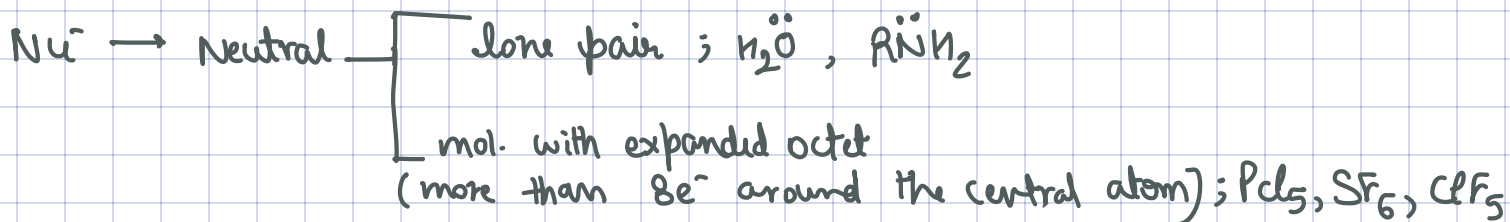 Nu⁻ → Neutral lone pair ; H₂Ö , RN̈H₂
mol. with expanded octet
(more than 8e⁻ around the central atom) ; PCl₅, SF₆, ClF₅